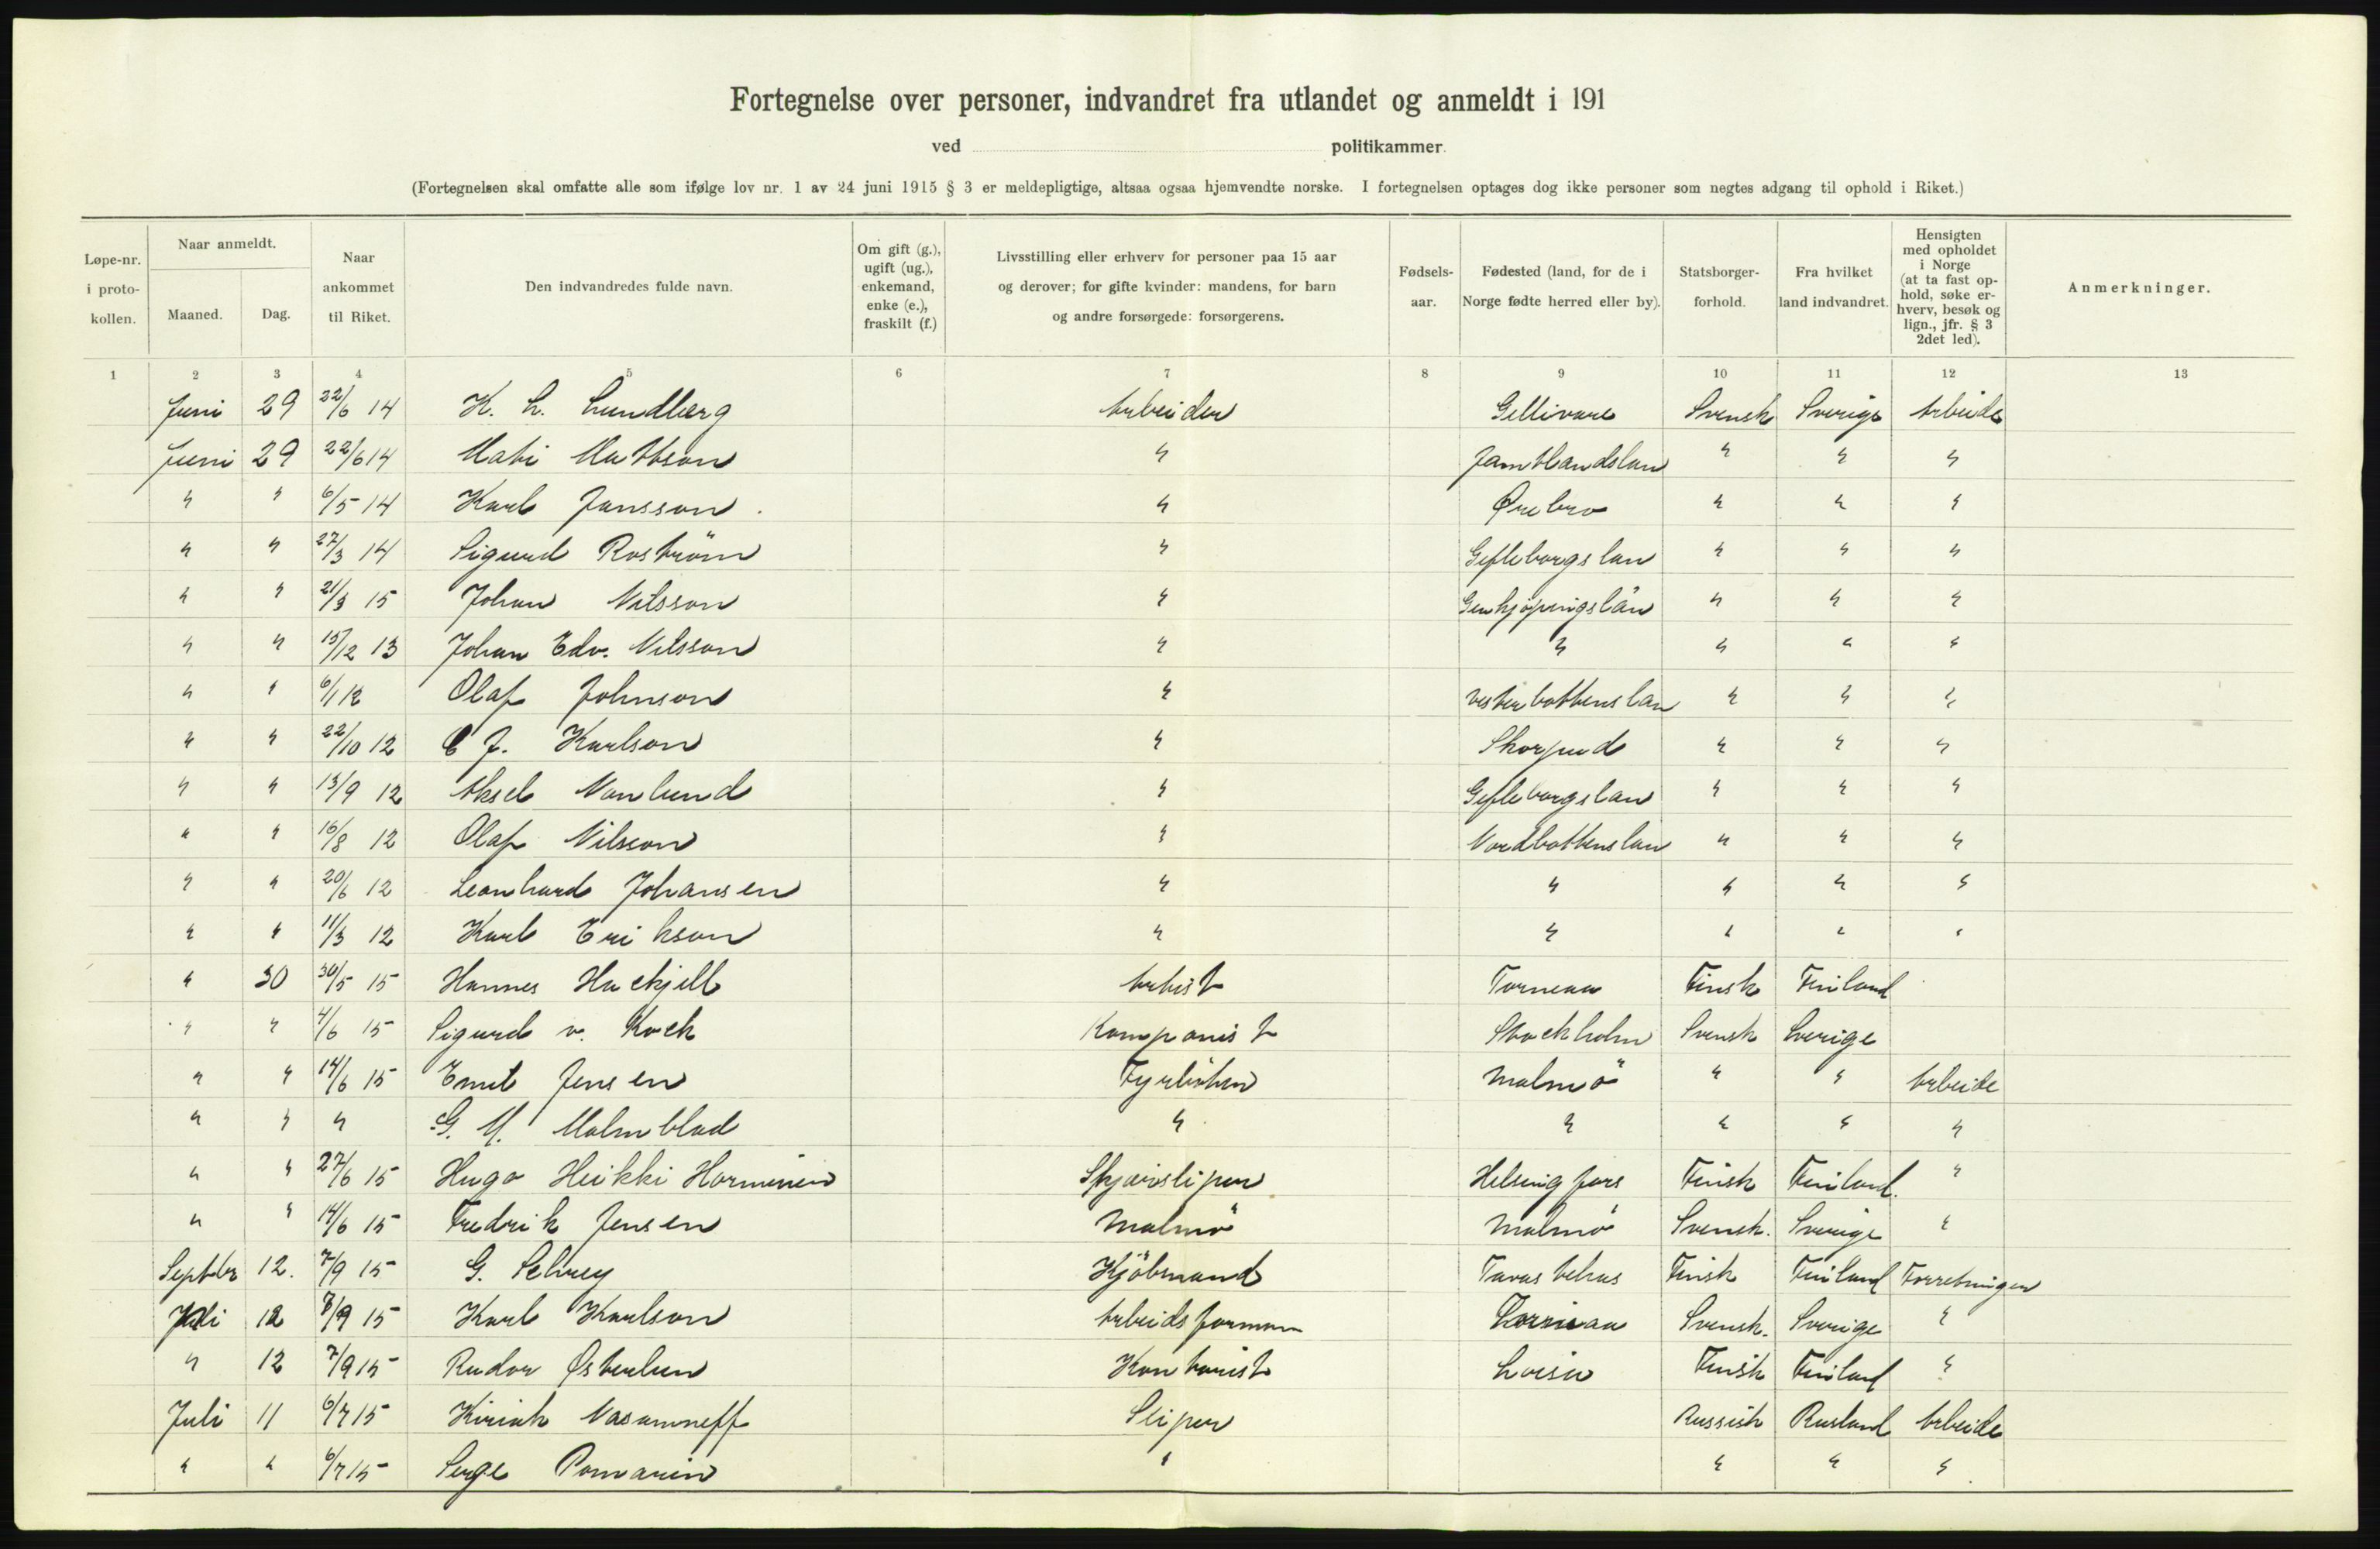 Fortegnelse over personer, indvandret fra utlandet og anmeldt i 191
ved politikammer.
(Fortegnelsen skal omfatte alle som ifølge lov nr. 1 av 24 juni 1915 § 3 er meldepligtige, altsaa ogsaa hjemvendte norske. I fortegnelsen optages dog ikke personer som negtes adgang til ophold i Riket.)
Løpe-nr. i proto-kollen. Naar anmeldt. Maaned. Dag. Naar ankommet til Riket. Den indvandredes fulde navn. Om gift (g.), ugift (ug.), enkemand, enke (e.), fraskilt (f.) Livsstilling eller erhverv for personer paa 15 aar og derover; for gifte kvinder: mandens, for barn og andre forsørgede: forsørgerens. Fødsels-aar. Fødested (land, for de i Norge fødte herred eller by). Statsborger-forhold. Fra hvilket land indvandret. Hensigten med opholdet i Norge (at ta fast op-hold, søke er-hverv, besøk og lign., jfr. § 3 2det led). Anmerkninger.
1 2 3 4 5 6 7 8 9 10 11 12 13
Juni 29 22/6 14 K. L. Lundberg Arbeider Gellivare Svensk Sverige Arbeide
Juni 29 22/6 14 Mati Mattson " Jamtlandslan " " "
" " 6/5 14 Karl Jansson . " Ørebro " " "
" " 27/3 14 Sigurd Roström " Gefleborgslan " " "
" " 21/3 15 Johan Nilsson " Genkjøpingslän " " "
" " 15/12 13 Johan Edv. Nilsson " " " " "
" " 6/1 12 Olaf Johnson " Vesterbottenslan " " "
" " 22/10 12 C J. Karlson " " " "
" " 13/9 12 Aksel Nonlund " Gefleborgslan " " "
" " 16/8 12 Olaf Nilsson " Nordbottenslan " " "
" " 20/6 12 Leonhard Johansen " " " " "
" " 11/3 12 Karl Erikson " " " " "
" 30 30/5 15 Hannes Hackjell Artist Torneaa Finsk Finland
" " 4/6 15 Sigurd v. Koch Komponist Stockholm Svensk Sverige
" " 14/6 15 Emil Jensen Fyrbøter Malmö " " Arbeide
" " " G. M. Malmblad " " " " "
" " 27/6 15 Hugo Heikki Horminen Skjærsliper Helsingfors Finsk Finland. "
" " 14/6 15 Fredrik Jensen Malmö Malmö Svensk. Sverige "
Septbr 12. 7/9 15 G. Selvey Kjöbmand Tavastehus Finsk Finland Forretninger
Juli 12 7/9 15 Karl Karlson Arbeidsforman Svensk. Sverige "
" 12 7/9 15 Rudor Østerlun Kontorist Loisa Finsk Finland "
Juli 11 6/7 15 Kiriak Nasamneff Sliper Russisk Rusland Arbeide
" " 6/7 15 Serge Pomarin " " " "